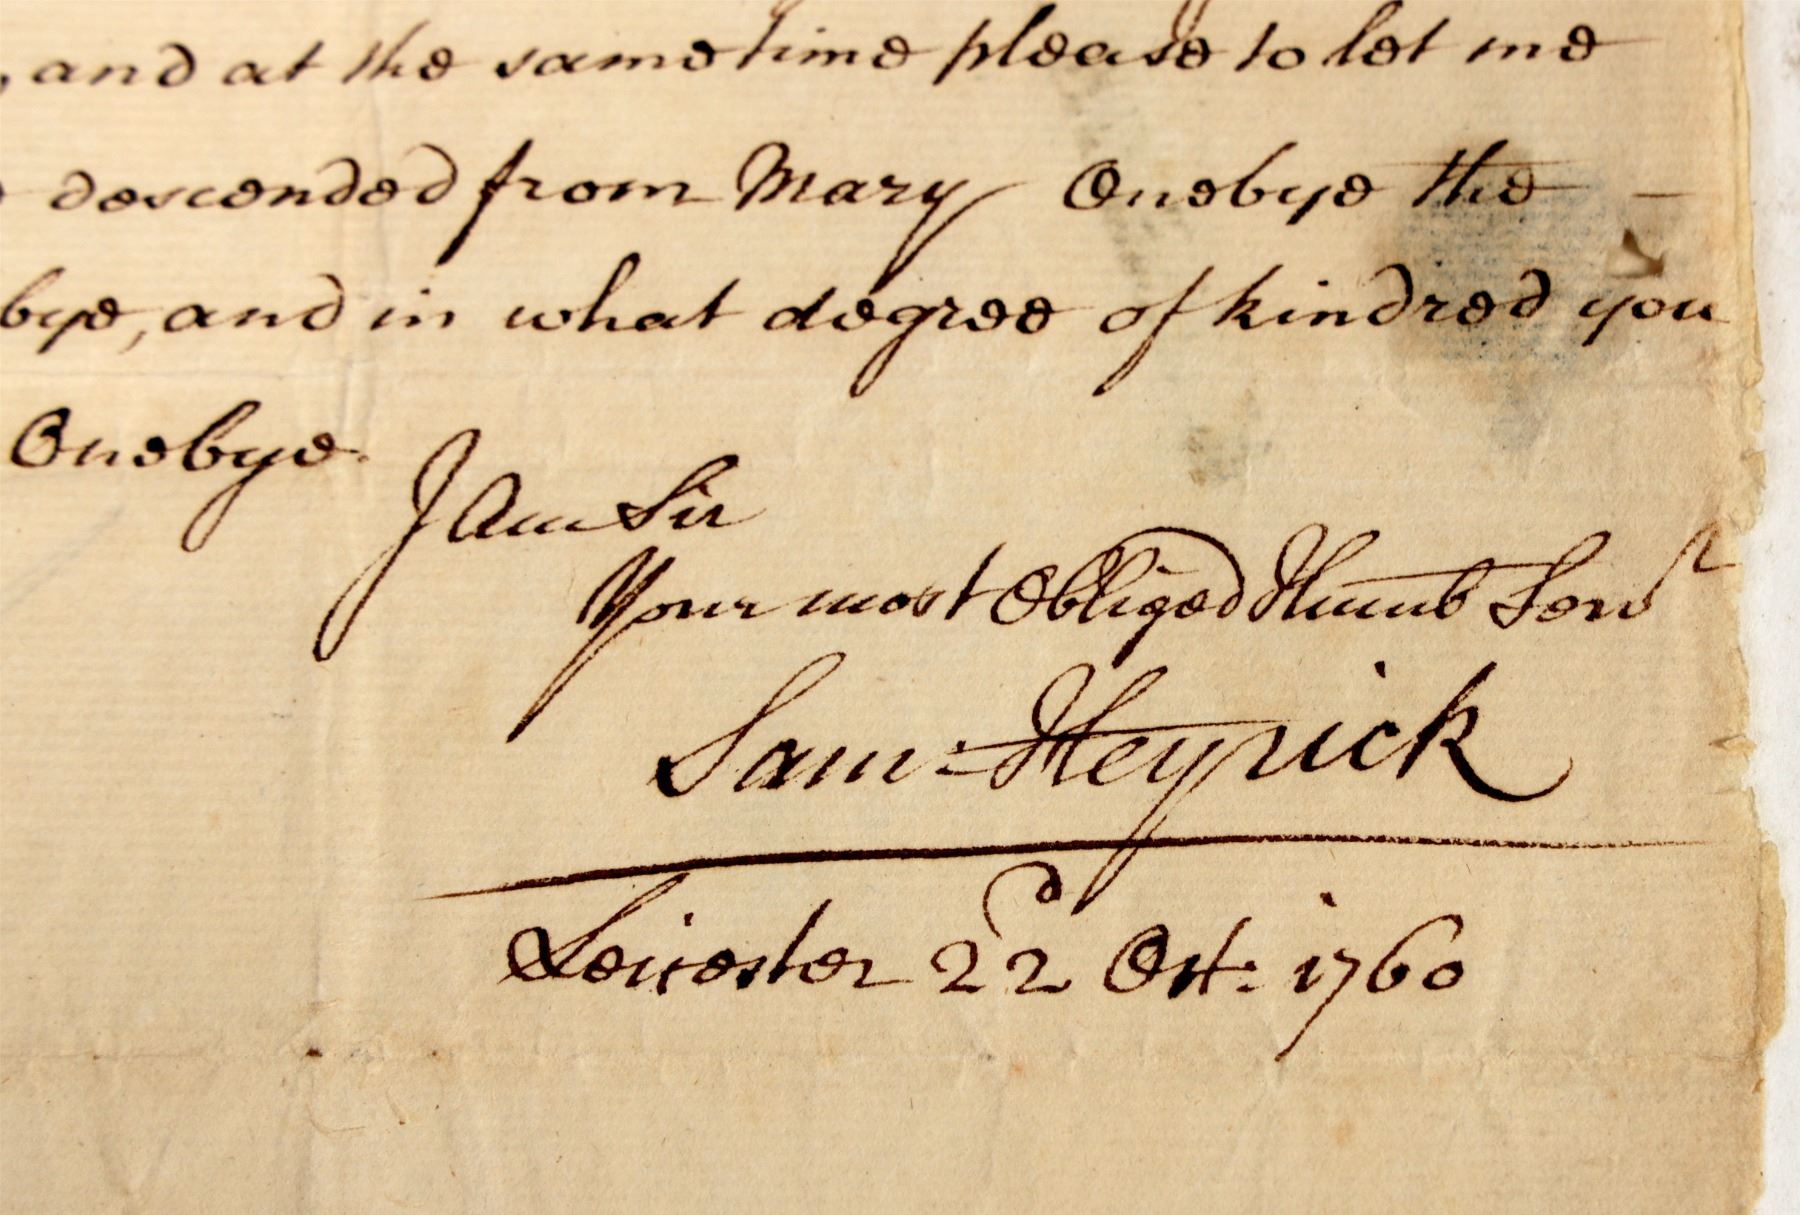 , and at the same time please to let me
descended from Mary Onebye the —
bye, and in what degree of kindred you
Onebye.
I am Sir
Your most Obliged Humb Servt
Sam: Heyrick
Leicester 22d Oct: 1760